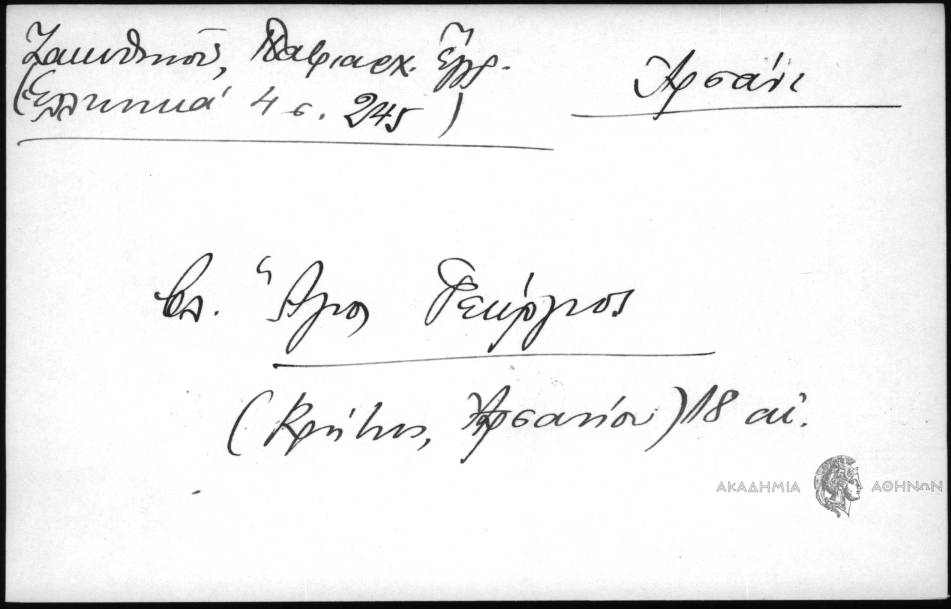 Ζακυθηνοῦ, Πατριαρχ. Ἔγγρ.
(Ἑλληνικά 4 σ. 245)
Ἀρσάνι
βλ. Ἅγιος Γεώργιος
(Κρήτης, Ἀρσανίου) 18 αἰ.
ΑΚΑΔΗΜΙΑ ΑΘΗΝΩΝ